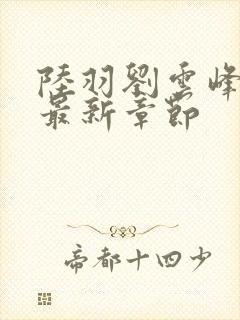 陸羽劉雲峰
最新章節
帝都十四少